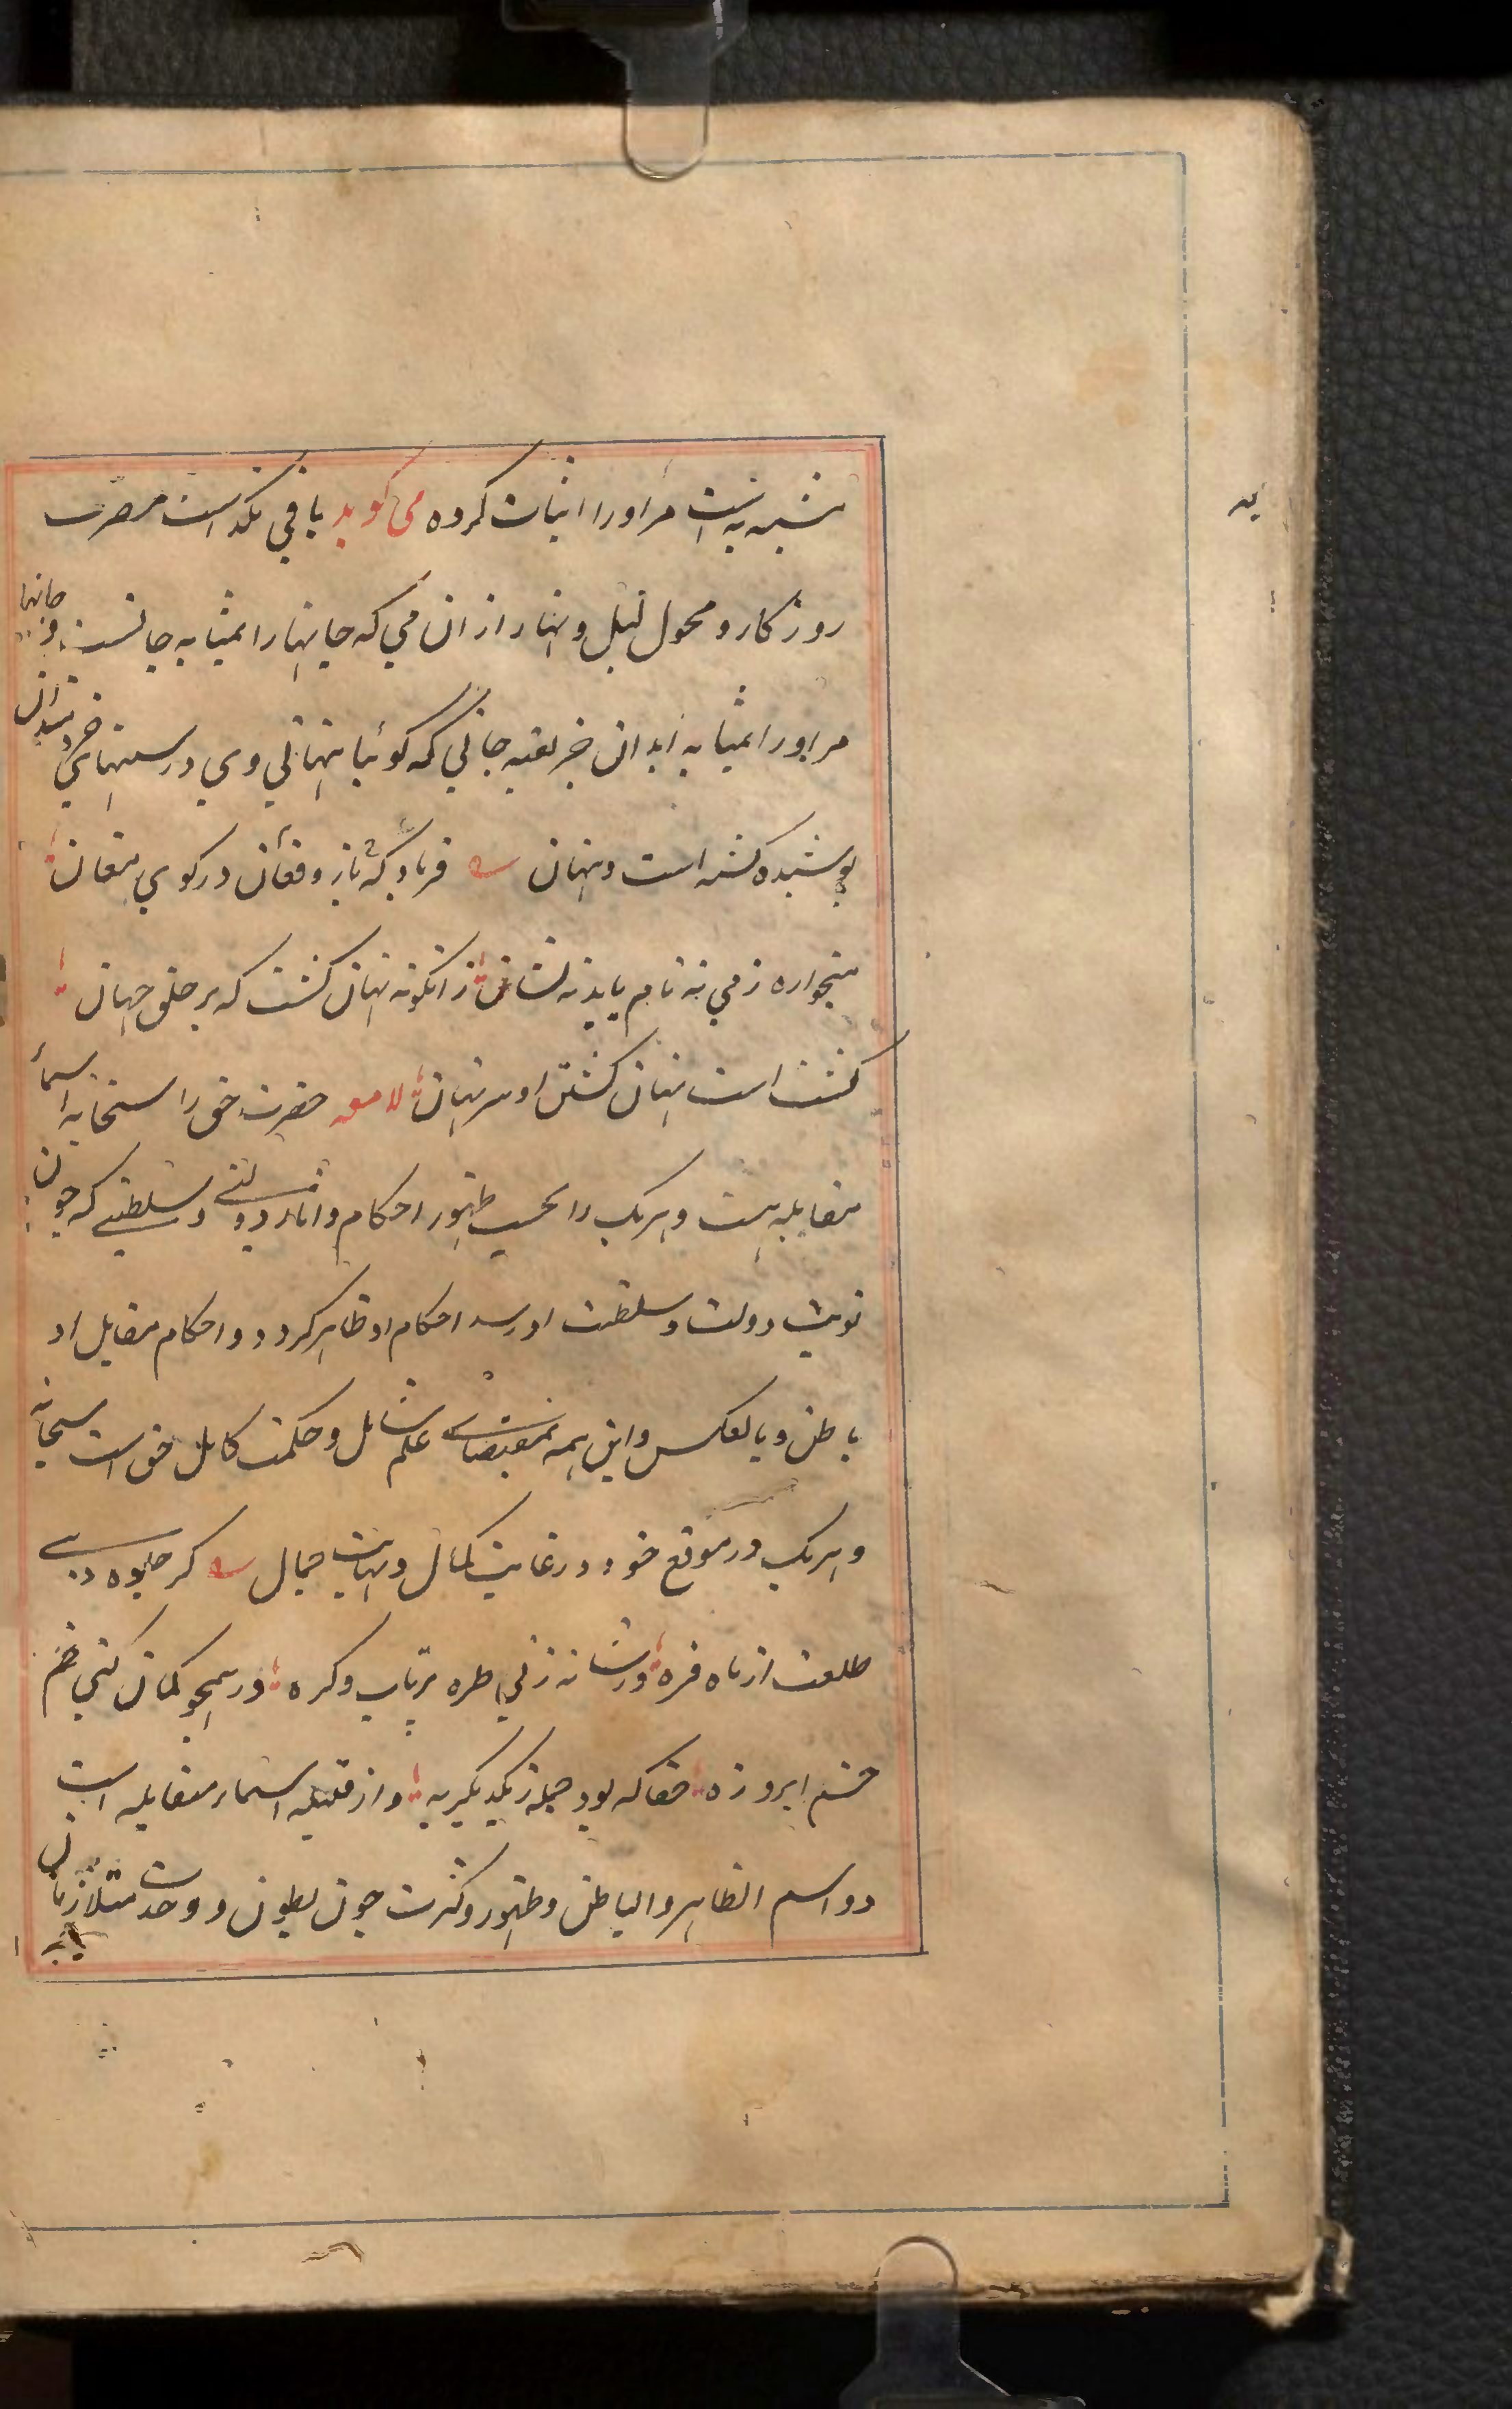 مشبه به است مر او را اثبات کرده می گوید باقی نگذاشت مصرت
روزکار و محول لیل و نهار از ان می که جانها را بمثابه جانست و جانها
مر او را بمثابه ابدان خبر بقیه جانی که کوئیا پنهانی وی در سینهای خردمندان
پوشیده کشته است و پنهان فریاد که باز و فغان در کوی مغان
میخواره ز می نه نام یابد نه نشان زانکونه نهان کشت که بر خلق جهان
کشت است پنهان کشتن او سر پنهان لامعه حضرت حق را سبحانه اسماء
متقابله هست و هریک را بحسب ظهور احکام و اثار دولتی و سلطنتی که چون
نوبت دولت و سلطنت او رسد احکام او ظاهر کردد و احکام مقابل او
باطن و بالعکس و این همه بمقتضای علم شامل و حکمت کامل حق است سبحانه
و هریک در موقع خود در غایت کمال و نهایت جمال کر جلوه دهی
طلعت از ماه فره ور شانه زنی طره پرتاب و کره ور همچو کمان کنی خم
خشم ابرو زه حقا که بود جمله ز یکدیکر به و از قبیله اسماء متقابله است
دو اسم الظاهر و الباطن و ظهور و کثرت چون بطون و وحدت متلازمان